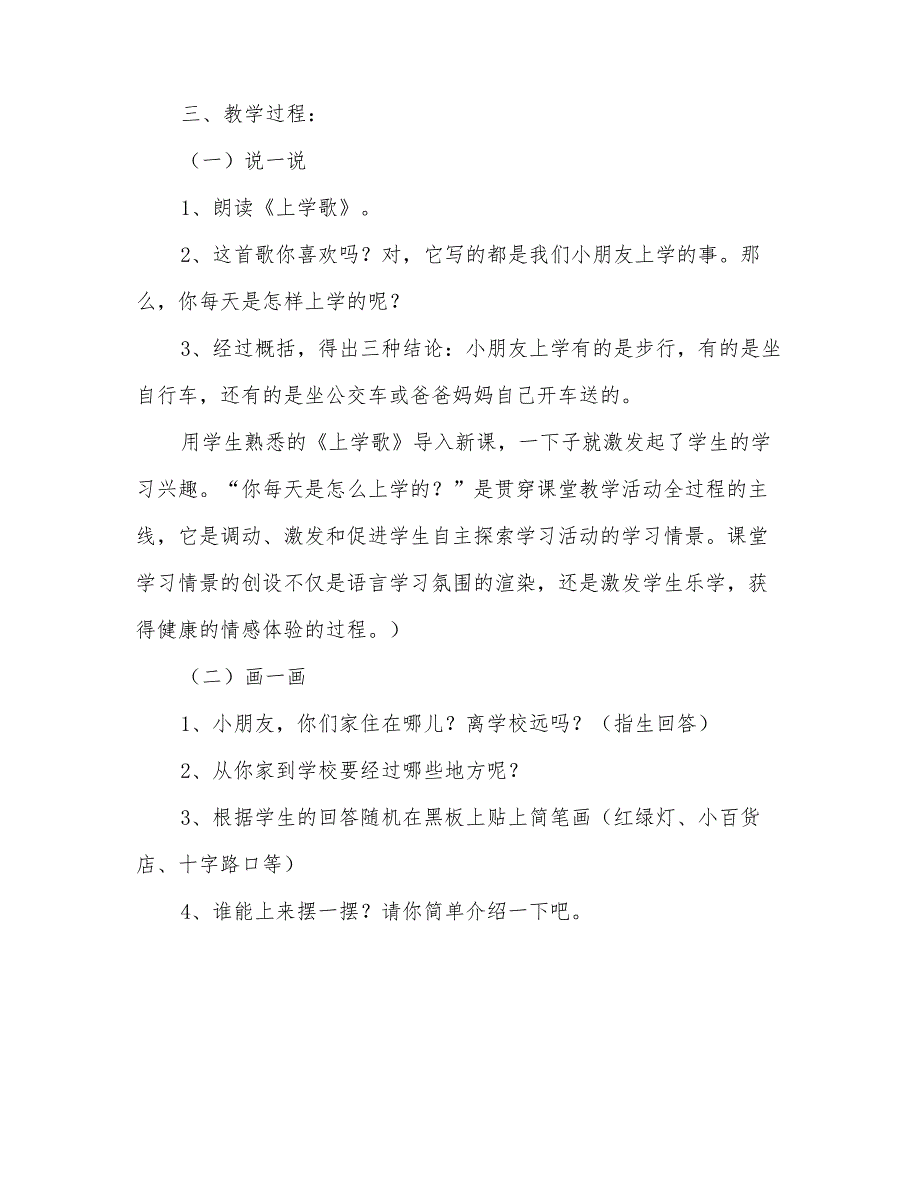 三、教学过程：
（一）说一说
1、朗读《上学歌》。
2、这首歌你喜欢吗？对，它写的都是我们小朋友上学的事。那
么，你每天是怎样上学的呢？
3、经过概括，得出三种结论：小朋友上学有的是步行，有的是坐
自行车，还有的是坐公交车或爸爸妈妈自己开车送的。
用学生熟悉的《上学歌》导入新课，一下子就激发起了学生的学
习兴趣。“你每天是怎么上学的？”是贯穿课堂教学活动全过程的主
线，它是调动、激发和促进学生自主探索学习活动的学习情景。课堂
学习情景的创设不仅是语言学习氛围的渲染，还是激发学生乐学，获
得健康的情感体验的过程。）
（二）画一画
1、小朋友，你们家住在哪儿？离学校远吗？（指生回答）
2、从你家到学校要经过哪些地方呢？
3、根据学生的回答随机在黑板上贴上简笔画（红绿灯、小百货
店、十字路口等）
4、谁能上来摆一摆？请你简单介绍一下吧。